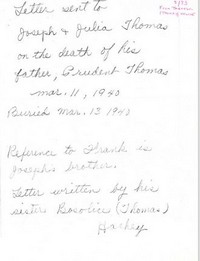 Letter sent to
Joseph & Julia Thomas
on the death of his
father, Prudent Thomas
Mar. 11, 1940
Buried Mar. 13 1940
Reference to Frank is
Joseph's brother.
Letter written by his
sister Rosalie (Thomas)
Hachey